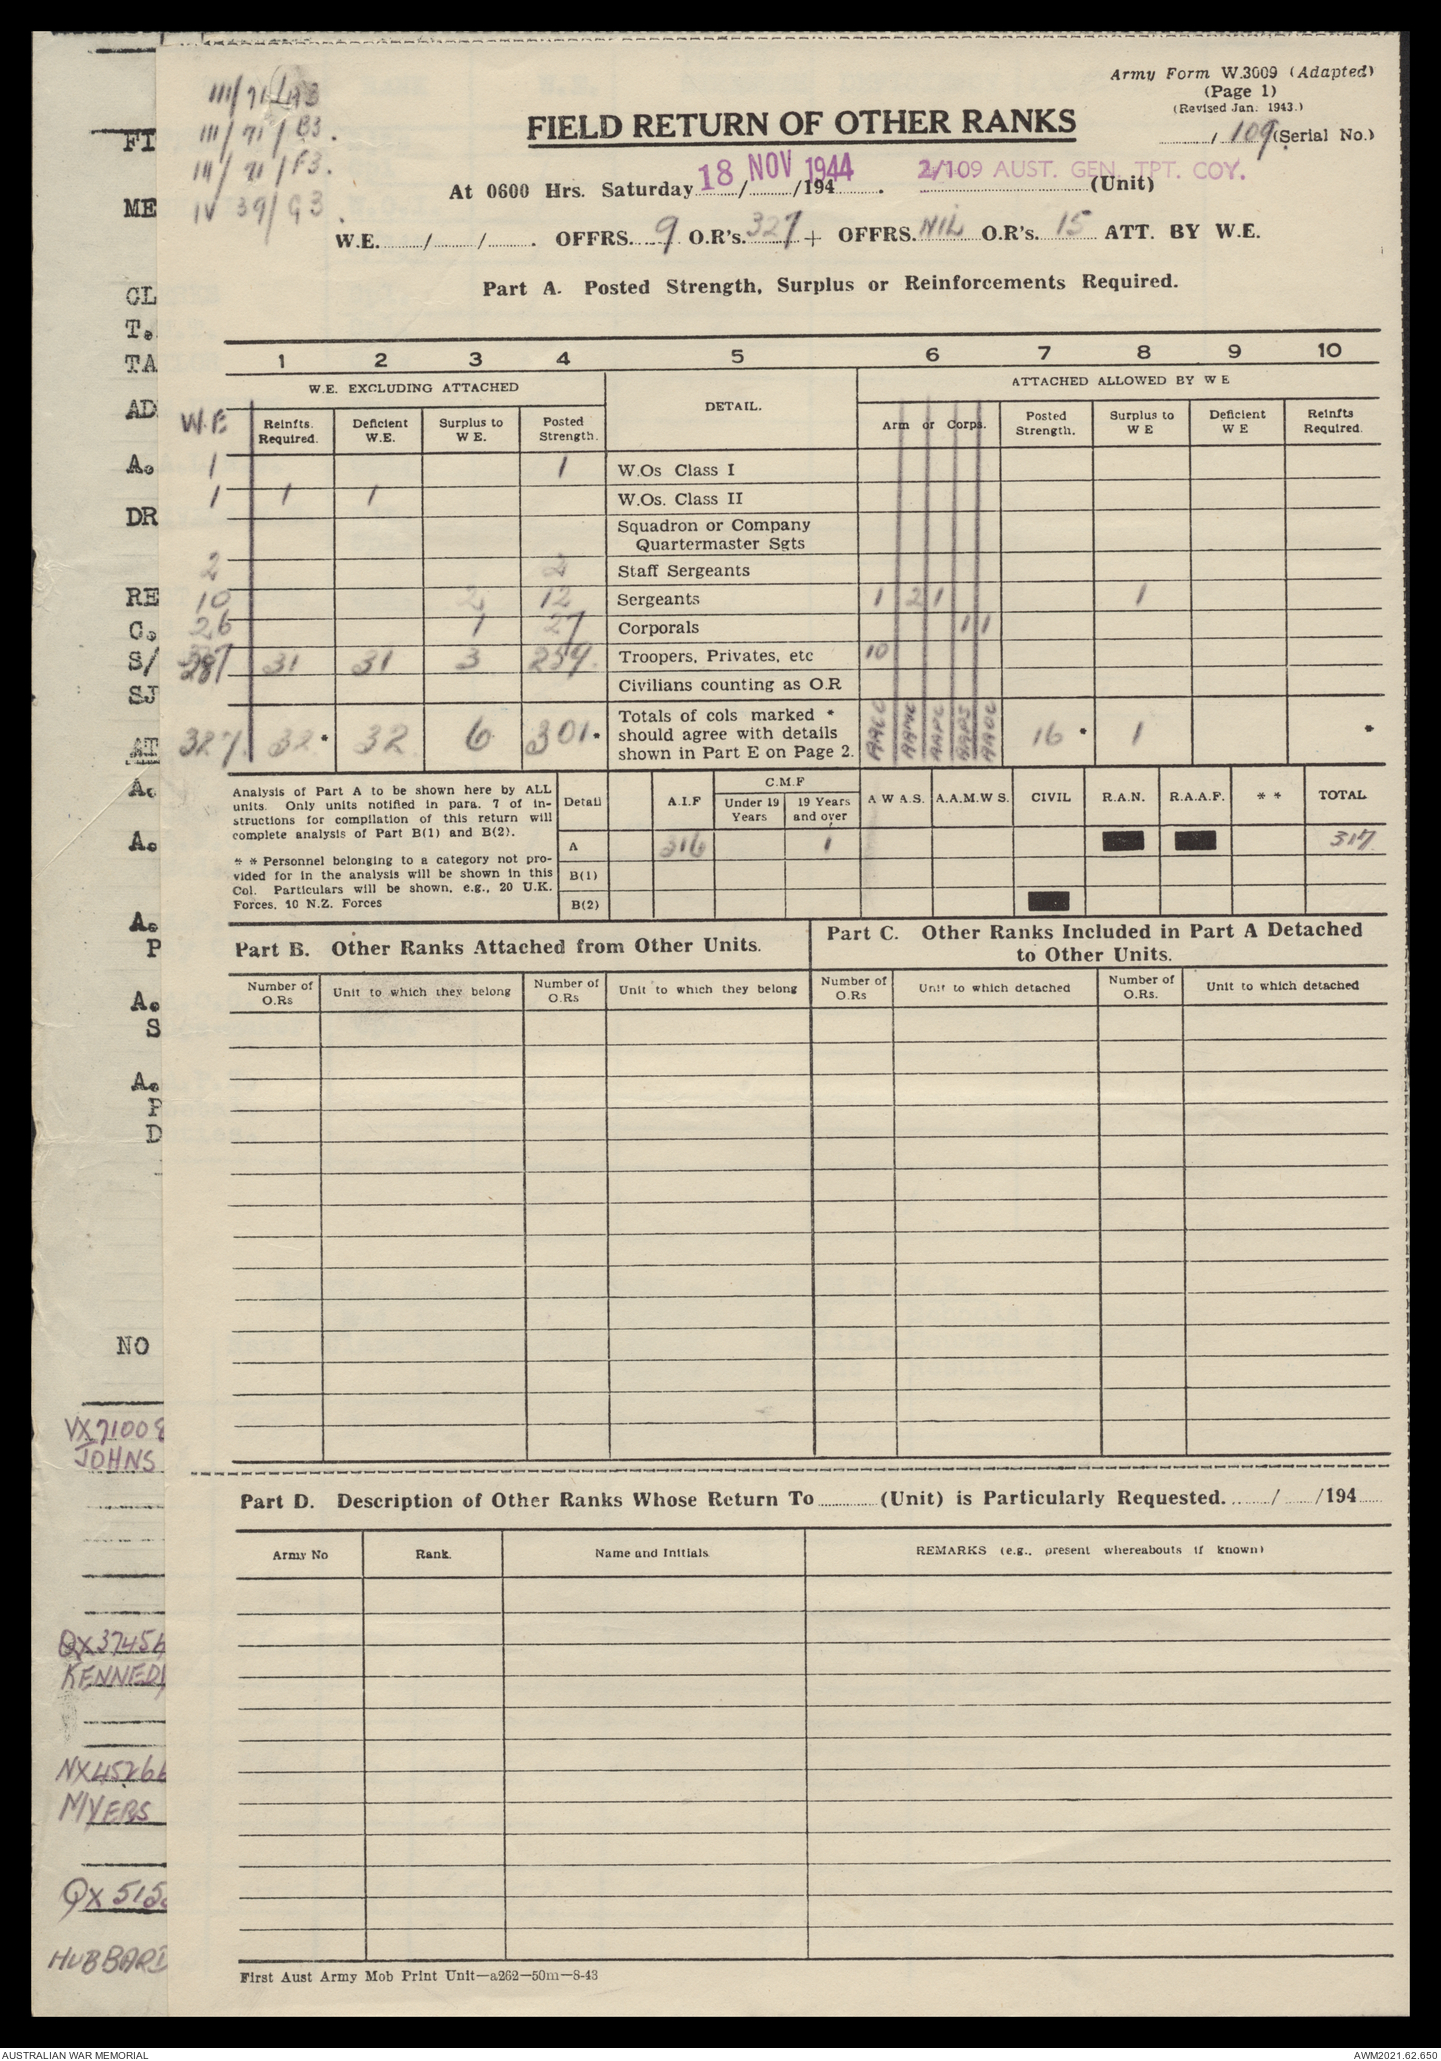 111/71/A3
111/71/B3.
111/71/F3.
IV 39/G3.
Army Form W.3009 (Adapted)
(Page 1)
(Revised Jan. 1943.)
FIELD RETURN OF OTHER RANKS
/109 (Serial No.)
At 0600 Hrs. Saturday 18 NOV 1944 / /194 . 2/109 AUST. GEN. TPT. COY. (Unit)
W.E. / / . OFFRS. 9 O.R's. 327 + OFFRS. NIL O.R's. 15 ATT. BY W.E.
Part A. Posted Strength, Surplus or Reinforcements Required.
1 2 3 4 5 6 7 8 9 10
W.E. EXCLUDING ATTACHED DETAIL. ATTACHED ALLOWED BY W E
W.E Reinfts. Required. Deficient W.E. Surplus to W E. Posted Strength. Arm or Corps. Posted Strength. Surplus to W E Deficient W E Reinfts Required.
1 1 W.Os Class I
1 1 1 W.Os. Class II
Squadron or Company
Quartermaster Sgts
2 2 Staff Sergeants
10 2 12 Sergeants 1 2 1 1
26 1 27 Corporals 1 1
287 31 31 3 259. Troopers, Privates, etc 10
Civilians counting as O.R
327. 32* 32 6 301* Totals of cols marked * should agree with details shown in Part E on Page 2. AAMC AAPC AAOC 16 * 1 *
Analysis of Part A to be shown here by ALL
units. Only units notified in para. 7 of in-
structions for compilation of this return will
complete analysis of Part B(1) and B(2).
* * Personnel belonging to a category not pro-
vided for in the analysis will be shown in this
Col. Particulars will be shown, e.g., 20 U.K.
Forces, 10 N.Z. Forces
Detail A.I.F C.M.F Under 19 Years 19 Years and over A W A.S. A.A.M.W S. CIVIL R.A.N. R.A.A.F. * * TOTAL
A 316 1 317
B(1)
B(2)
Part B. Other Ranks Attached from Other Units.
Part C. Other Ranks Included in Part A Detached
to Other Units.
Number of O.Rs Unit to which they belong Number of O.Rs Unit to which they belong Number of O.Rs Unit to which detached Number of O.Rs. Unit to which detached
Part D. Description of Other Ranks Whose Return To (Unit) is Particularly Requested. / /194
Army No Rank. Name and Initials REMARKS (e.g., present whereabouts if known)
First Aust Army Mob Print Unit—a262—50m—8-43
FT
ME
CL
T.
TA
AD
A.
DR
RE
C.
S/
SJ
AT
A.
A.
A.
P
A.
S
A.
P
D
NO
VX71008
JOHNS
QX37456
KENNEDY
NX45266
MYERS
QX515
HUBBARD
AUSTRALIAN WAR MEMORIAL
AWM2021.62.650